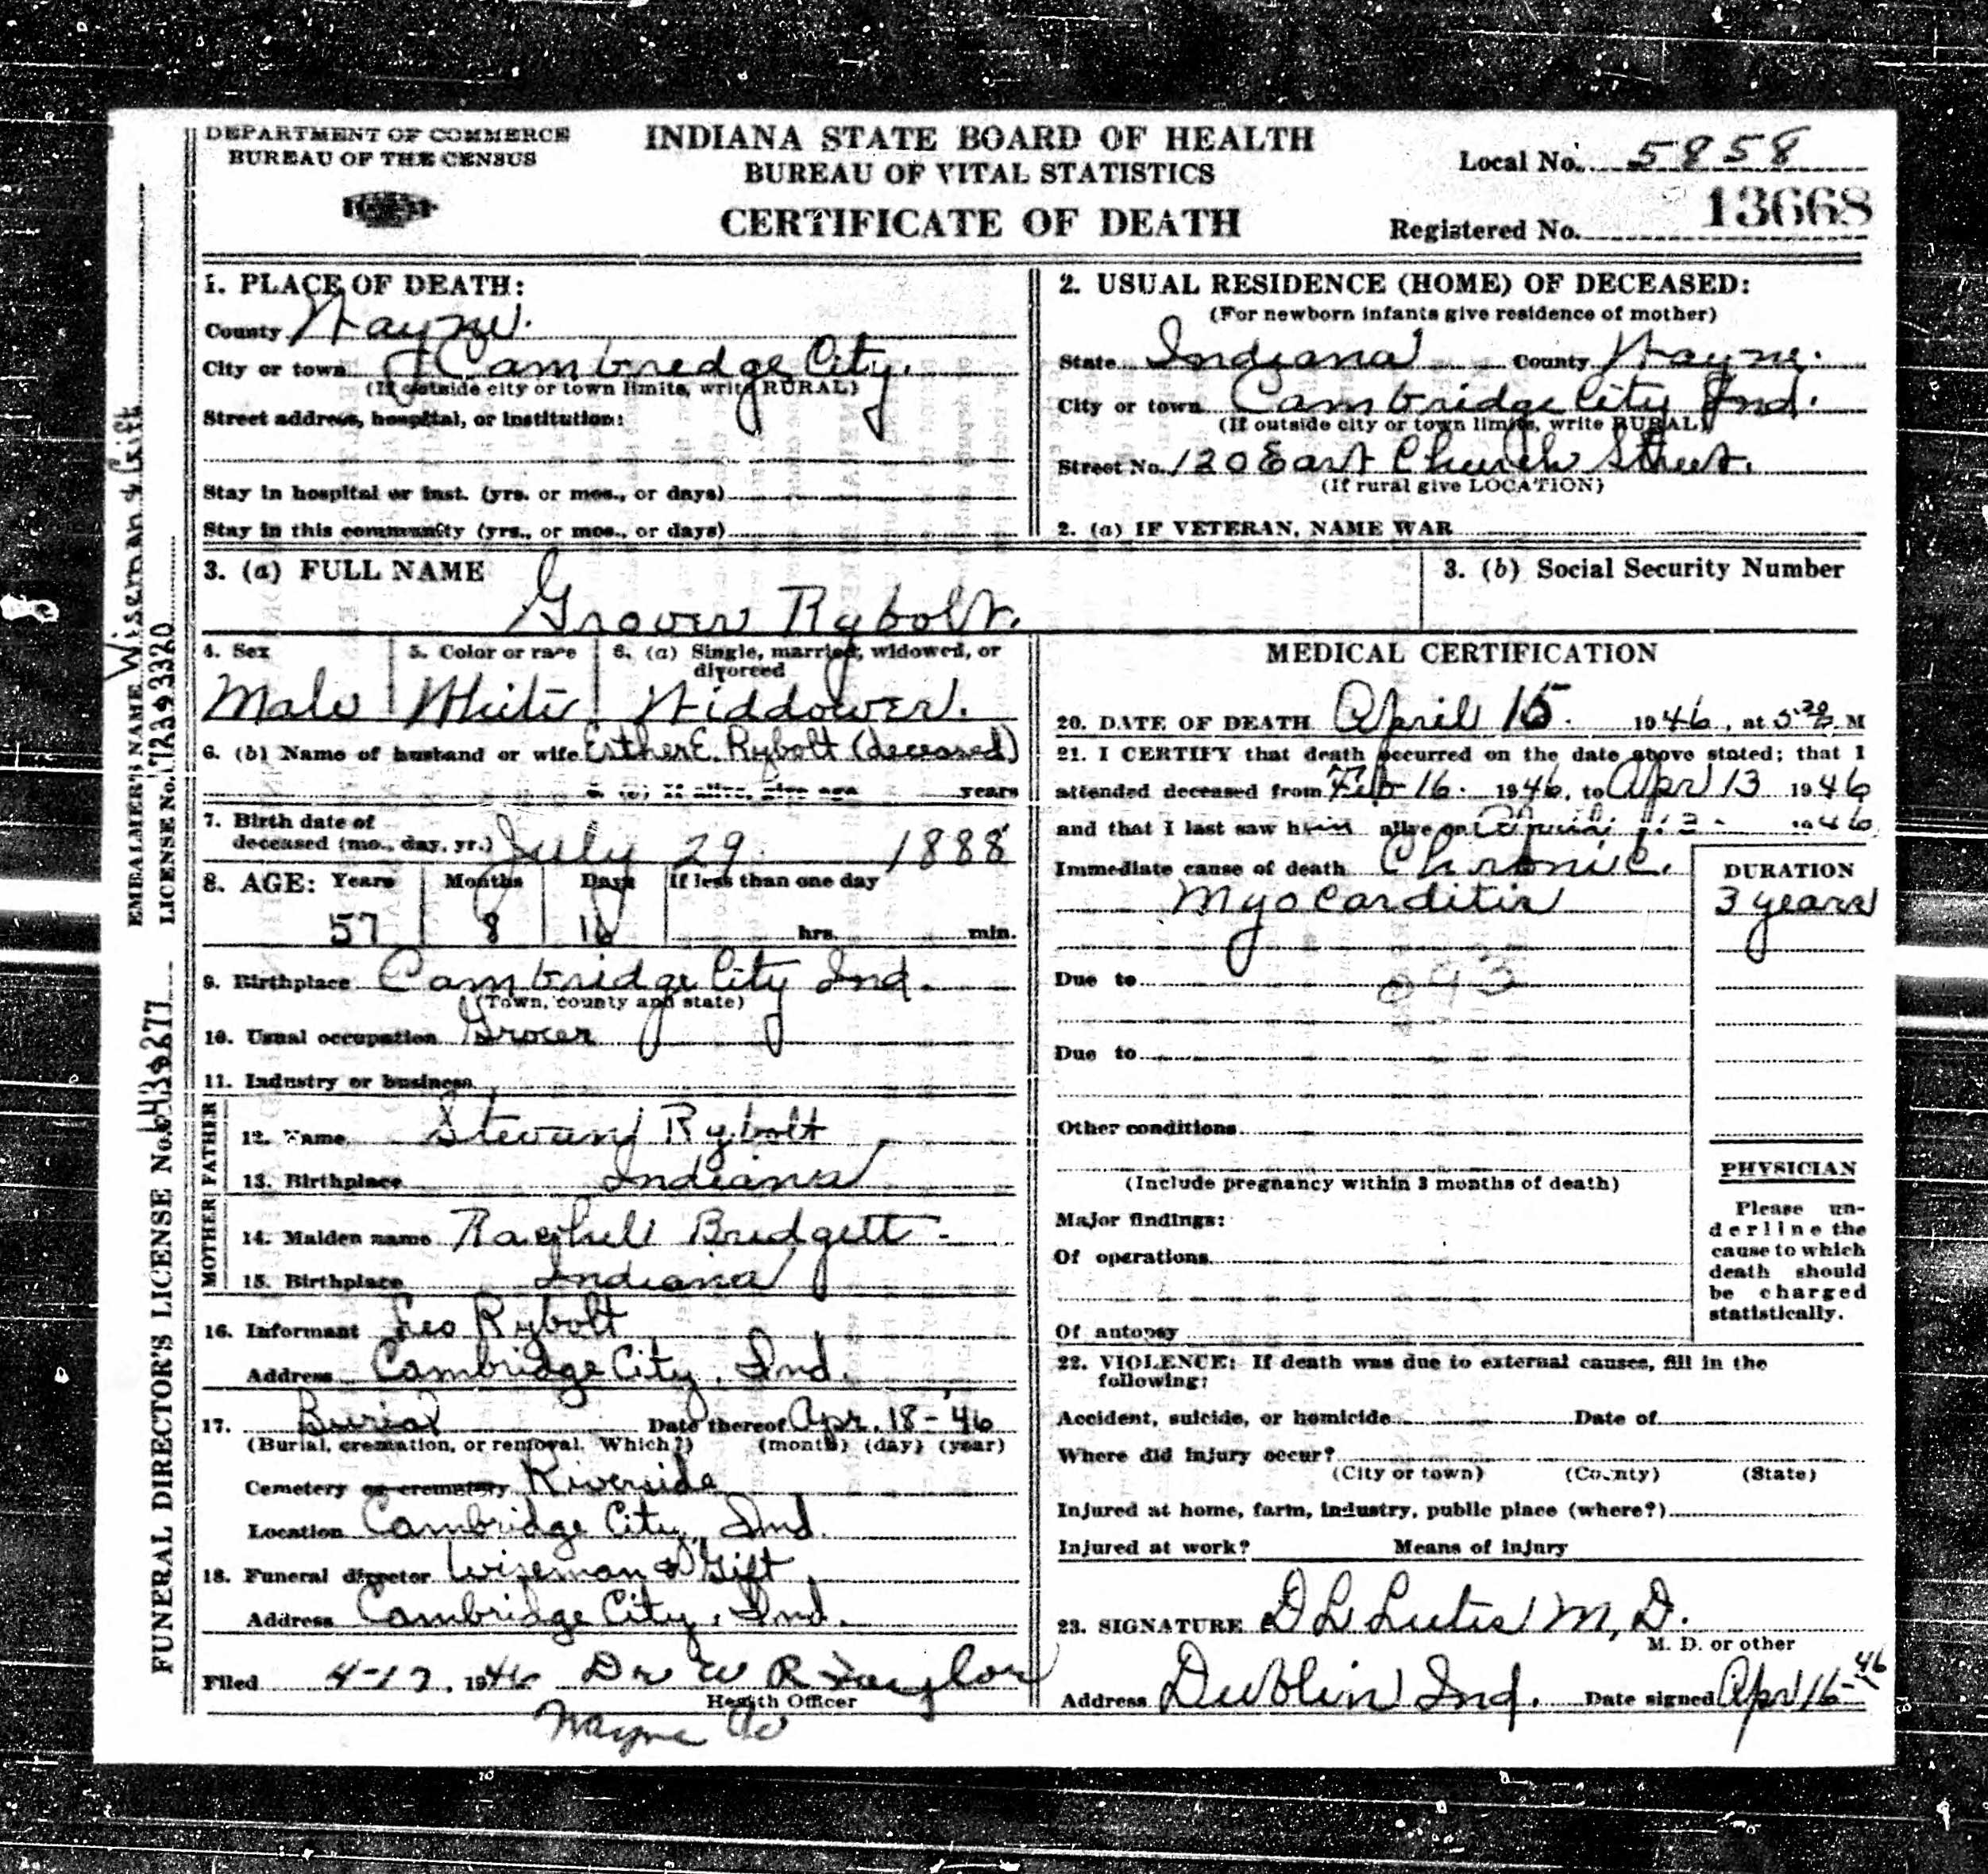 DEPARTMENT OF COMMERCE
BUREAU OF THE CENSUS
INDIANA STATE BOARD OF HEALTH
BUREAU OF VITAL STATISTICS
CERTIFICATE OF DEATH
Local No. 5858
Registered No. 13668
EMBALMER'S NAME Wiseman & Gift
LICENSE No.
FUNERAL DIRECTOR'S LICENSE No.
1. PLACE OF DEATH:
County Wayne.
City or town Cambredge City.
(If outside city or town limits, write RURAL)
Street address, hospital, or institution:
Stay in hospital or inst. (yrs. or mos., or days)
Stay in this community (yrs., or mos., or days)
2. USUAL RESIDENCE (HOME) OF DECEASED:
(For newborn infants give residence of mother)
State Indiana County Wayne.
City or town Cambridge City Ind.
(If outside city or town limits, write RURAL)
Street No. 120 East Church Street.
(If rural give LOCATION)
2. (a) IF VETERAN, NAME WAR
3. (a) FULL NAME
Grover Rybolt.
3. (b) Social Security Number
4. Sex
Male
5. Color or race
White
6. (a) Single, married, widowed, or
divorced
Widdower.
6. (b) Name of husband or wife Esther E. Rybolt (deceased)
6. (c) If alive, give age years
7. Birth date of
deceased (mo., day, yr.) July 29 1888
8. AGE: Years Months Days If less than one day
57 8 16 hrs. min.
9. Birthplace Cambridge City Ind.
(Town, county and state)
10. Usual occupation Grocer
11. Industry or business
FATHER
12. Name Rybolt
13. Birthplace Indiana
MOTHER
14. Maiden name Rachel Bridgett
15. Birthplace Indiana
16. Informant Leo Rybolt
Address Cambridge City, Ind.
17. Burial Date thereof Apr. 18-'46
(Burial, cremation, or removal. Which?) (month) (day) (year)
Cemetery or crematory Riverside
Location Cambridge City, Ind.
18. Funeral director Wiseman & Gift
Address Cambridge City, Ind.
Filed 4-17, 1946 Dr W R Taylor
Health Officer
Wayne Co
MEDICAL CERTIFICATION
20. DATE OF DEATH April 15. 1946, at M
21. I CERTIFY that death occurred on the date above stated; that I
attended deceased from Feb 16. 1946, to Apr 13 1946
and that I last saw him alive on April 13 1946
Immediate cause of death Chronic.
Myocarditis
DURATION
3 years
Due to 093
Due to
Other conditions
(Include pregnancy within 3 months of death)
Major findings:
Of operations
Of autopsy
PHYSICIAN
Please un-
derline the
cause to which
death should
be charged
statistically.
22. VIOLENCE: If death was due to external causes, fill in the
following:
Accident, suicide, or homicide Date of
Where did injury occur?
(City or town) (County) (State)
Injured at home, farm, industry, public place (where?)
Injured at work? Means of injury
23. SIGNATURE D L Lutes M, D.
M. D. or other
Address Dublin Ind. Date signed Apr 16-46